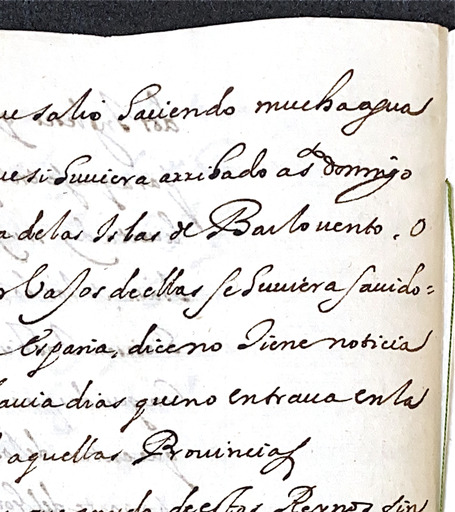 ue salio haciendo mucha agua
ue si huuiera arribado a sto domingo
a de las Islas de Barlovento, o
r bajos de ellas se huuiera sauido =
España, dice no tiene noticia
hauia dias que no entraua en la
aquellas Prouincias
de estos Reynos sin